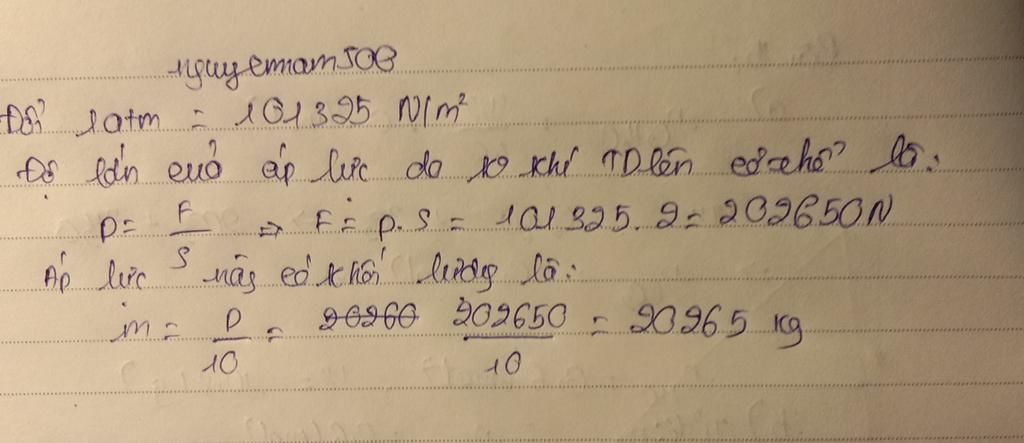 nguyennam50B
Đổi 1atm = 101325 N/m²
Độ lớn của áp lực do ko khí TD lên cơ thể là:
p = F/S => F = p.S = 101325.2 = 202650N
Áp lực này có khối lượng là:
m = P/10 = 20260 202650/10 = 20265 kg